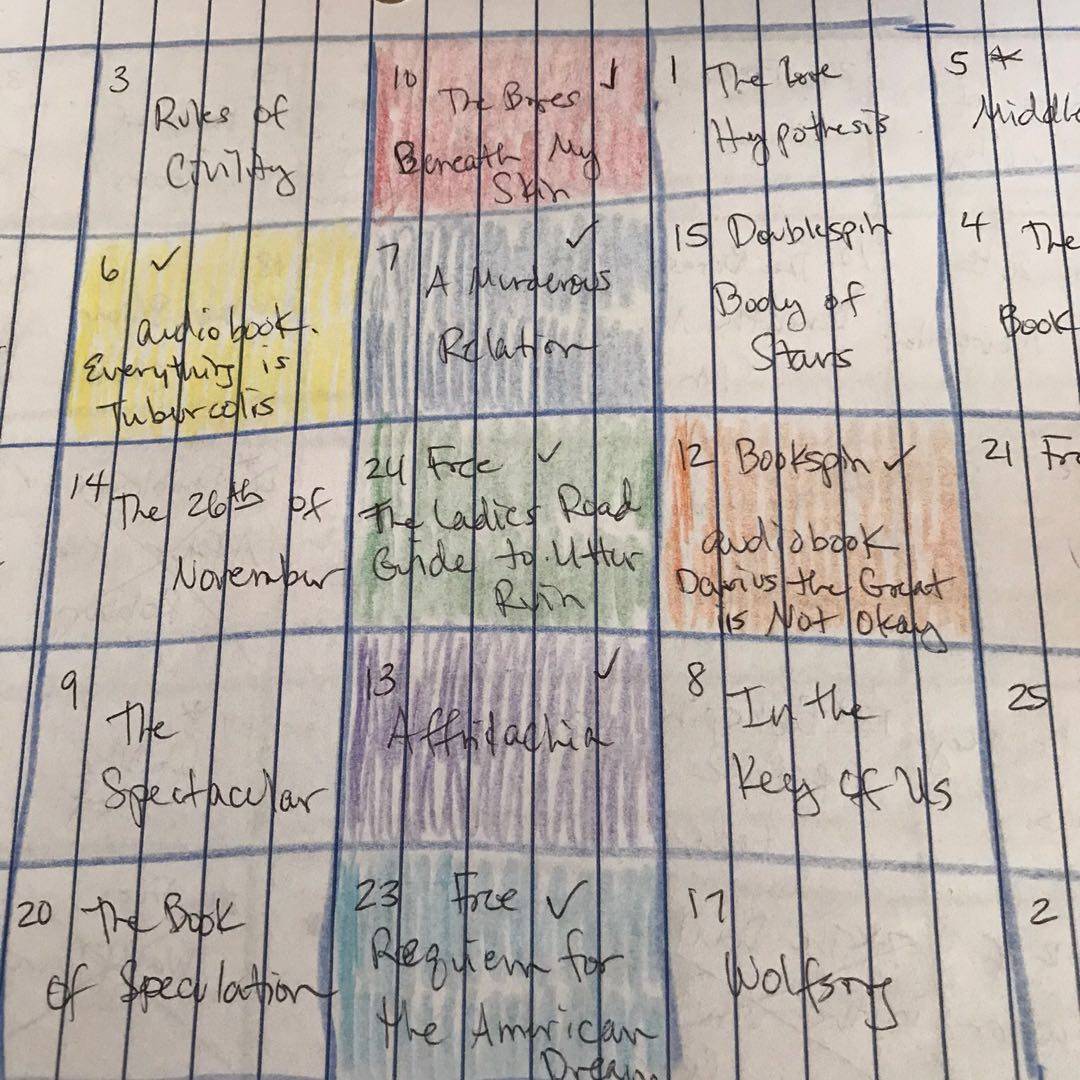 3
Rules of
Civility
10 ✓
The Bones
Beneath My
Skin
1 The Love
Hypothesis
5 *
Middle
6 ✓
audiobook.
Everything is
Tuburcolis
7 ✓
A Murderous
Relation
15 Doublespin
Body of
Stars
4 The
Book
14 The 26th of
November
24 Free ✓
The Ladies Road
Guide to Utter
Ruin
12 Bookspin ✓
audiobook
Darius the Great
is Not Okay
21 Fr
9
The
Spectacular
13 ✓
Affrilachia
8 In the
Key of Us
25
20 The Book
of Speculation
23 Free ✓
Requiem for
the American
Dream
17
Wolfsong
2